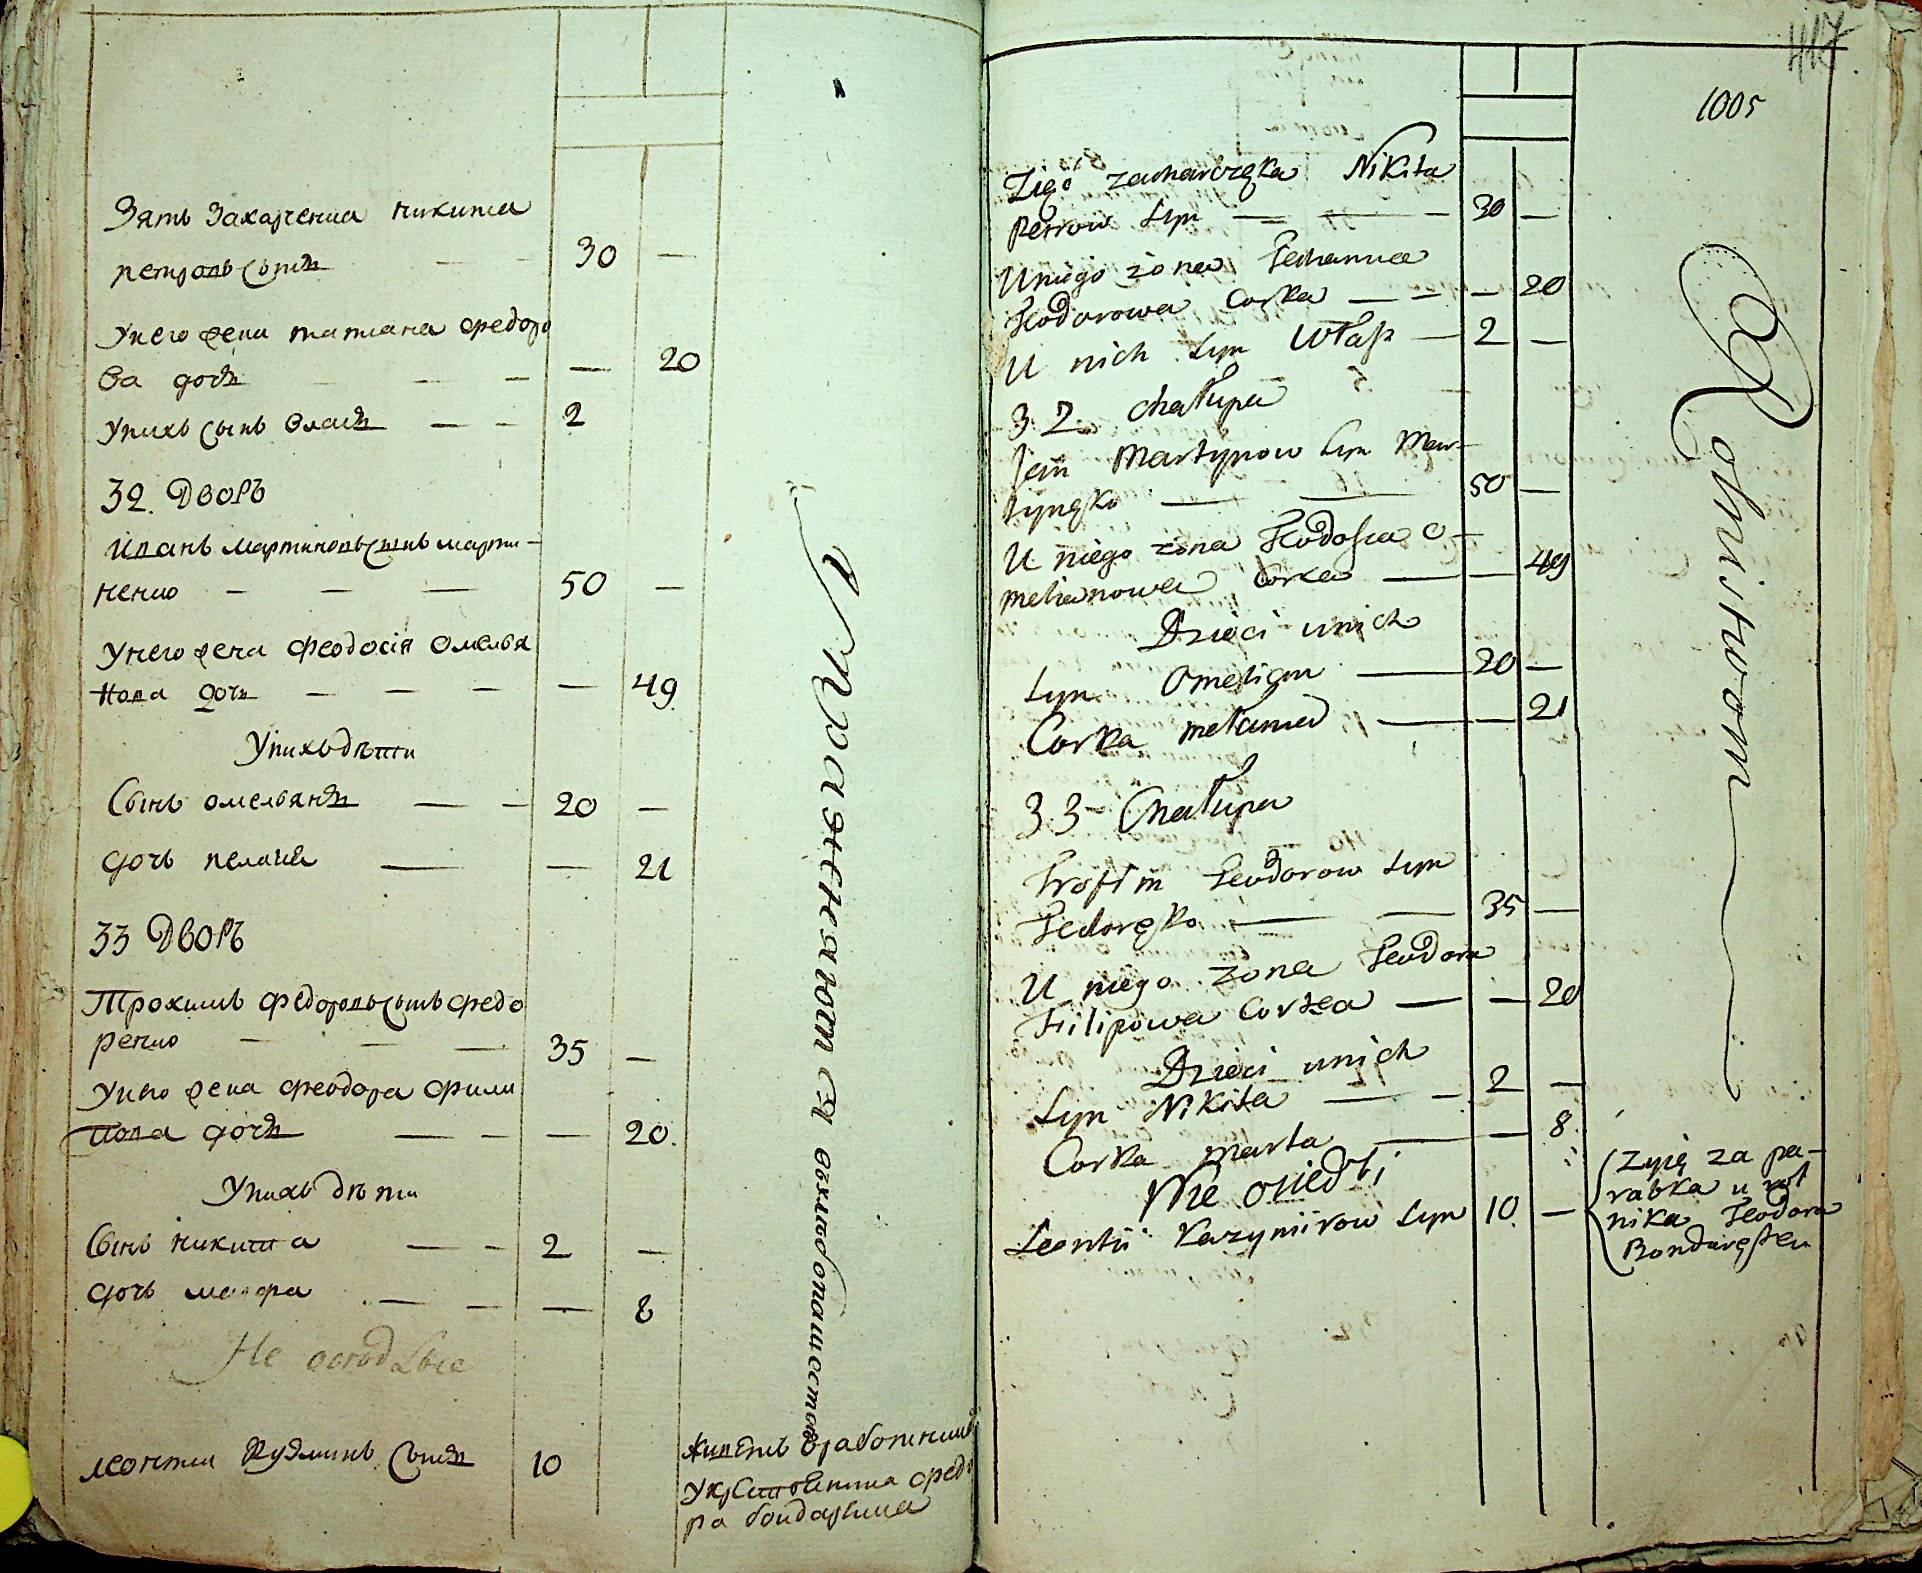 Зять Захарченка никита
петровъ сынъ — — 30 —
Унего жена татиана федоро
ва дочь — — — 20
Унихъ сынъ власъ — — 2
32. Дворъ
Иванъ мартиновъ сынъ марти-
ненко — — — 50 —
Унего жена феодосія Омелья
нова дочь — — — — 49
Унихъ дѣти
Сынъ омельянъ — — 20 —
дочь меланія — — 21
33 Дворъ
Трохимъ федоровъ сынъ федо
ренко — — — 35 —
Унего жена феодора фили
пова дочь — — — 20.
Унихъ дѣти
Сынъ никита — — 2 —
дочь марфа — — — 8
Не оседлые
леонтии сынъ 10
живетъ вработникахъ
Укрестянина федо
ра бондаренка
Упражняются вхлебопашестве
417
1005
Zięć zacharczęka Nikita
Petrow syn — — — 30 —
U niego żona Techanna
Teodorowa Corka — — — 20
U nich syn Własz — 2 —
32 chałupa
Jan Martynow syn Mar-
tynęko — — 50 —
U niego żona Teodosia O-
melianowa Corka — — 49
Dzieci unich
Syn Omelian — 20 —
Corka mełania — — 21
33 Chałupa
Trofim Teodorow syn
Fedoręko — — 35 —
U niego żona Teodora
Filipowa Corka — — 20
Dzieci unich
Syn Nikita — — 2 —
Corka marta — — 8.
Nie osiedli
Leontii Kazymirow syn 10. —
Zyię za pa-
rabka u rol
nika Teodora
Bondaręka
Rolnistwom